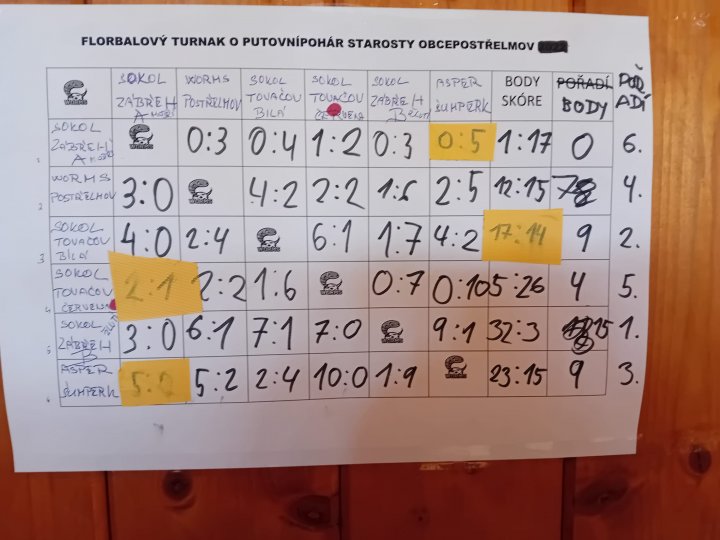 FLORBALOVÝ TURNAK O PUTOVNÍPOHÁR STAROSTY OBCEPOSTŘELMOV
WORMS SOKOL ZÁBŘEH A MODŘÍ WORMS POSTŘELMOV SOKOL TOVAČOV BÍLÁ SOKOL TOVAČOV ČERVENÁ SOKOL ZÁBŘEH B ASPER ŠUMPERK BODY SKÓRE POŘADÍ BODY POŘADÍ
1 SOKOL ZÁBŘEH A MODŘÍ WORMS 0:3 0:4 1:2 0:3 0:5 1:17 0 6.
2 WORMS POSTŘELMOV 3:0 WORMS 4:2 2:2 1:6 2:5 12:15 4.
3 SOKOL TOVAČOV BÍLÁ 4:0 2:4 WORMS 6:1 1:7 4:2 17:14 9 2.
4 SOKOL TOVAČOV ČERVENÁ 2:1 2:2 1:6 WORMS 0:7 0:10 5:26 4 5.
5 SOKOL ZÁBŘEH B 3:0 6:1 7:1 7:0 WORMS 9:1 32:3 15 1.
6 ASPER ŠUMPERK 5:0 5:2 2:4 10:0 1:9 WORMS 23:15 9 3.